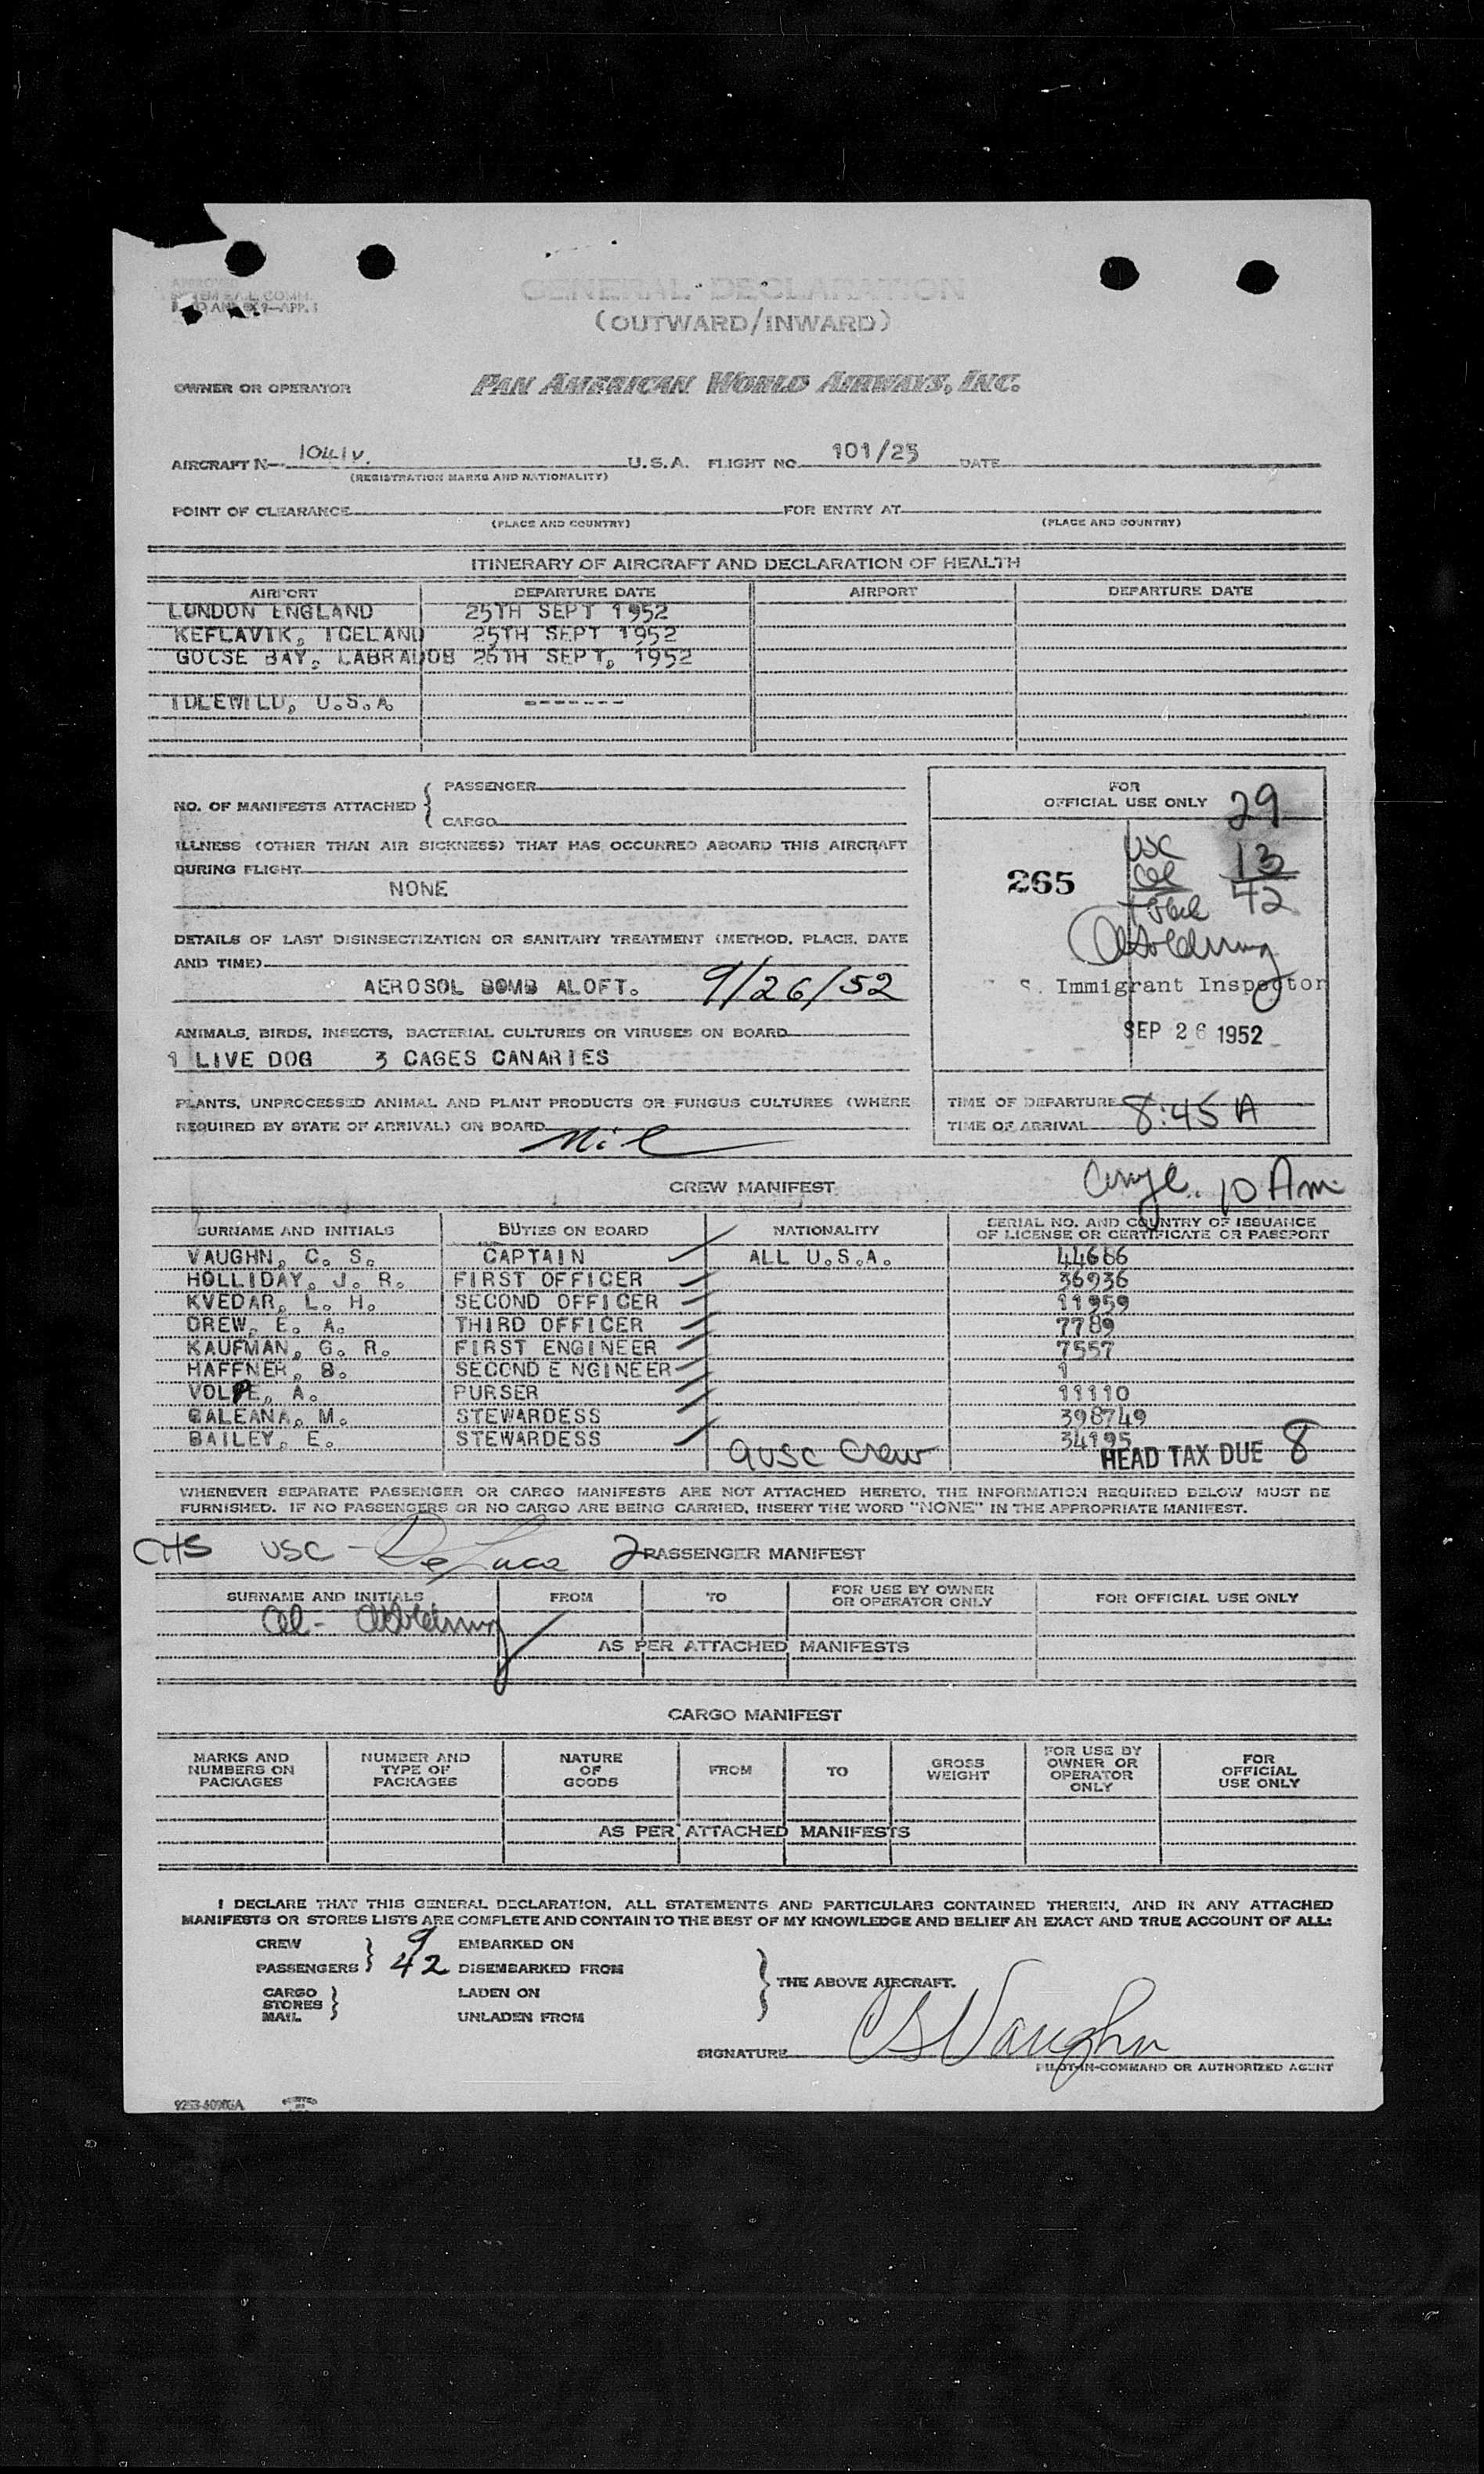 GENERAL DECLARATION
(OUTWARD/INWARD)
OWNER OR OPERATOR PAN AMERICAN WORLD AIRWAYS, INC.
AIRCRAFT N- 1041V. U.S.A. FLIGHT NO. 101/25 DATE
(REGISTRATION MARKS AND NATIONALITY)
POINT OF CLEARANCE FOR ENTRY AT
(PLACE AND COUNTRY) (PLACE AND COUNTRY)
ITINERARY OF AIRCRAFT AND DECLARATION OF HEALTH
AIRPORT DEPARTURE DATE AIRPORT DEPARTURE DATE
LONDON ENGLAND 25TH SEPT 1952
KEFLAVIK, ICELAND 25TH SEPT 1952
GOOSE BAY, LABRADOR 26TH SEPT, 1952
IDLEWILD, U.S.A. -------
NO. OF MANIFESTS ATTACHED
PASSENGER
CARGO
ILLNESS (OTHER THAN AIR SICKNESS) THAT HAS OCCURRED ABOARD THIS AIRCRAFT
DURING FLIGHT
NONE
DETAILS OF LAST DISINSECTIZATION OR SANITARY TREATMENT (METHOD, PLACE, DATE
AND TIME)
AEROSOL BOMB ALOFT. 9/26/52
ANIMALS, BIRDS, INSECTS, BACTERIAL CULTURES OR VIRUSES ON BOARD
1 LIVE DOG 3 CAGES CANARIES
PLANTS, UNPROCESSED ANIMAL AND PLANT PRODUCTS OR FUNGUS CULTURES (WHERE
REQUIRED BY STATE OF ARRIVAL) ON BOARD
Nil
FOR
OFFICIAL USE ONLY
USC 29
265 Al 13
Total 42
S. Immigrant Inspector
SEP 26 1952
TIME OF DEPARTURE
TIME OF ARRIVAL 8:45 A
10 Am
CREW MANIFEST
SURNAME AND INITIALS DUTIES ON BOARD NATIONALITY SERIAL NO. AND COUNTRY OF ISSUANCE
OF LICENSE OR CERTIFICATE OR PASSPORT
VAUGHN, C. S. CAPTAIN ALL U.S.A. 44686
HOLLIDAY, J. R. FIRST OFFICER 36936
KVEDAR, L. H. SECOND OFFICER 11959
DREW, E. A. THIRD OFFICER 7789
KAUFMAN, G. R. FIRST ENGINEER 7557
HAFFNER, B. SECOND E NGINEER 1
VOLPE, A. PURSER 11110
GALEANA, M. STEWARDESS 398749
BAILEY, E. STEWARDESS 34195
9 USC Crew HEAD TAX DUE 8
WHENEVER SEPARATE PASSENGER OR CARGO MANIFESTS ARE NOT ATTACHED HERETO, THE INFORMATION REQUIRED BELOW MUST BE
FURNISHED. IF NO PASSENGERS OR NO CARGO ARE BEING CARRIED, INSERT THE WORD "NONE" IN THE APPROPRIATE MANIFEST.
USC - De Luca 2
PASSENGER MANIFEST
SURNAME AND INITIALS FROM TO FOR USE BY OWNER
OR OPERATOR ONLY FOR OFFICIAL USE ONLY
Al -
AS PER ATTACHED MANIFESTS
CARGO MANIFEST
MARKS AND
NUMBERS ON
PACKAGES
NUMBER AND
TYPE OF
PACKAGES
NATURE
OF
GOODS
FROM
TO
GROSS
WEIGHT
FOR USE BY
OWNER OR
OPERATOR
ONLY
FOR
OFFICIAL
USE ONLY
AS PER ATTACHED MANIFESTS
I DECLARE THAT THIS GENERAL DECLARATION, ALL STATEMENTS AND PARTICULARS CONTAINED THEREIN, AND IN ANY ATTACHED
MANIFESTS OR STORES LISTS ARE COMPLETE AND CONTAIN TO THE BEST OF MY KNOWLEDGE AND BELIEF AN EXACT AND TRUE ACCOUNT OF ALL:
CREW 9 EMBARKED ON
PASSENGERS 42 DISEMBARKED FROM
THE ABOVE AIRCRAFT.
CARGO
STORES
MAIL
LADEN ON
UNLADEN FROM
SIGNATURE CS Vaughn
PILOT-IN-COMMAND OR AUTHORIZED AGENT